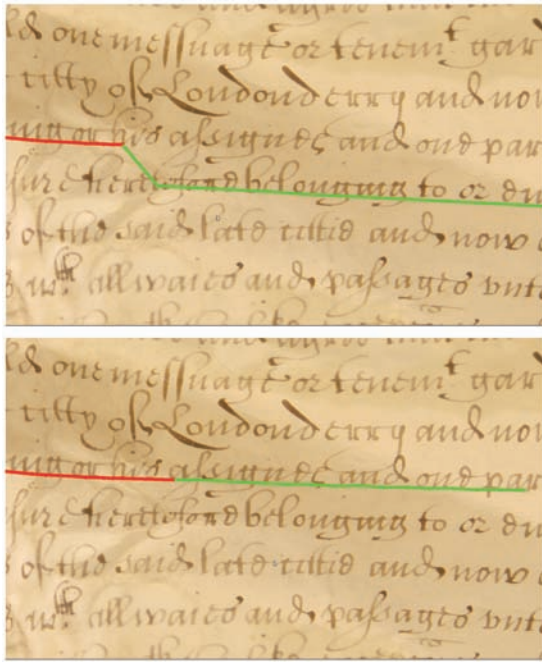 & one messuage or tenemt gar
citty of Londonderry and now
uig or his assignes and one par
sure heretofore belonging to or du
s of the said late cittie and now
all waies and passages vnt
& one messuage or tenemt gar
citty of Londonderry and now
uig or his assignes and one par
sure heretofore belonging to or du
s of the said late cittie and now
all waies and passages vnt